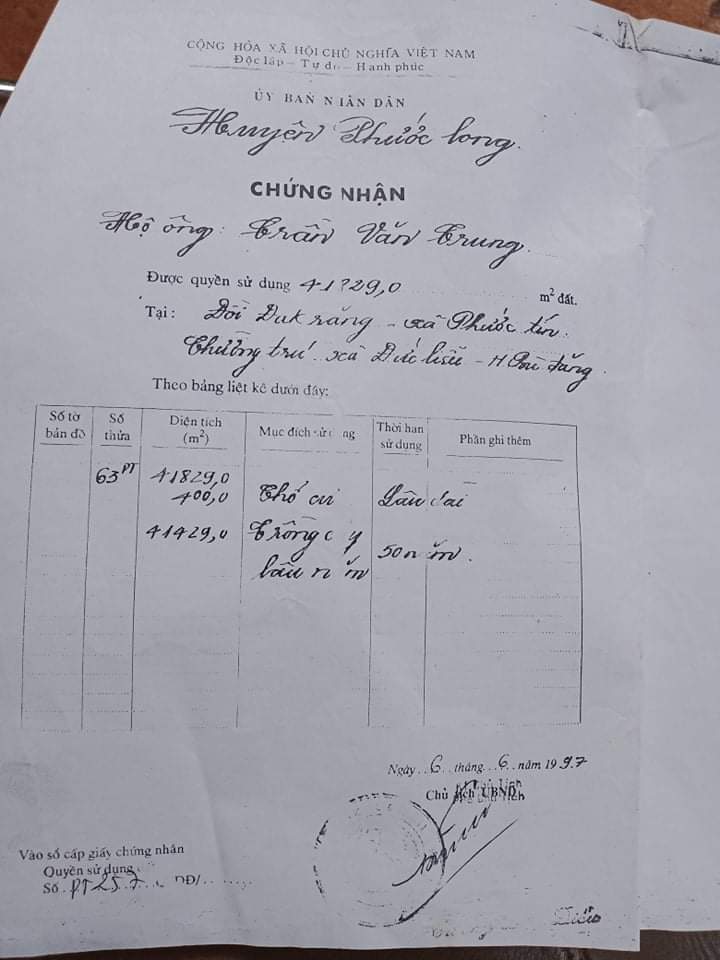 CỘNG HÒA XÃ HỘI CHỦ NGHĨA VIỆT NAM
Độc lập - Tự do - Hạnh phúc
ỦY BAN NHÂN DÂN
Huyện Phước Long.
CHỨNG NHẬN
Hộ ông: Trần Văn Trung.
Được quyền sử dụng 41829,0 m² đất.
Tại: Đồi Dak răng - xã Phước tín.
Thường trú xã Đức liễu - H
Theo bảng liệt kê dưới đây:
Số tờ bản đồ Số thửa Diện tích (m²) Mục đích sử dụng Thời hạn sử dụng Phần ghi thêm
63 PT 41829,0
400,0 Thổ cư Lâu dài
41429,0 Trồng cây 50 năm.
lâu năm
Ngày 6 tháng 6 năm 1997
Chủ tịch UBND
Vào sổ cấp giấy chứng nhận
Quyền sử dụng
Số PT 257 QĐ/